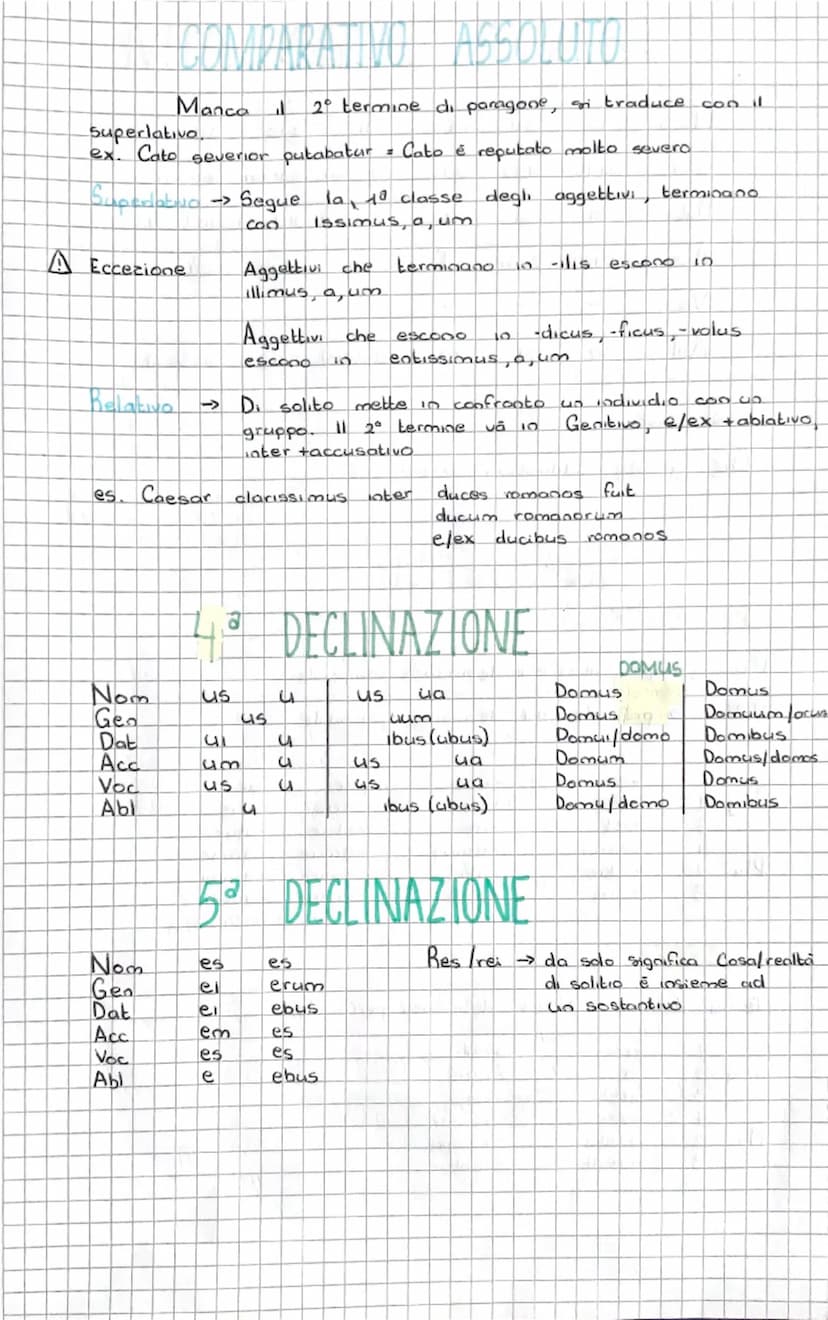 COMPARATIVO ASSOLUTO
Manca il 2° termine di paragone, si traduce con il
superlativo.
ex. Cato severior putabatur = Cato è reputato molto severo
Superlativo → Segue la 1ª classe degli aggettivi, terminano
con issimus, a, um
⚠ Eccezione Aggettivi che terminano in -ilis escono in
illimus, a, um
Aggettivi che escono in -dicus, -ficus, -volus
escono in entissimus, a, um
Relativo → Di solito mette in confronto un individio con un
gruppo. Il 2° termine và in Genitivo, e/ex +ablativo,
inter +accusativo
es. Caesar clarissimus inter duces romanos fuit
ducum romanorum
e/ex ducibus romanos
4ª DECLINAZIONE
DOMUS
Nom us u us ua Domus Domus
Gen us uum Domus Domuum/orum
Dat ui u ibus (ubus) Domui/domo Domibus
Acc um u us ua Domum Domus/domos
Voc us u us ua Domus Domus
Abl u ibus (ubus) Domu/domo Domibus
5ª DECLINAZIONE
Nom es es Res/rei → da solo significa Cosa/realtà
Gen ei erum di solitio è insieme ad
Dat ei ebus un sostantivo
Acc em es
Voc es es
Abl e ebus